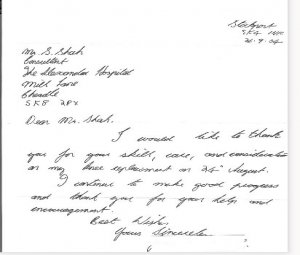 Stockport
SK4
26.9.04
Mr. S. Shah
Consultant
The Alexandra Hospital
Mill Lane
Cheadle
SK8 2PX
Dear Mr. Shah.
I would like to thank
you for your skill, care, and consideration
on my knee replacement on 24th August.
I continue to make good progress
and thank you for your help and
encouragement.
Best Wishes
Yours Sincerely